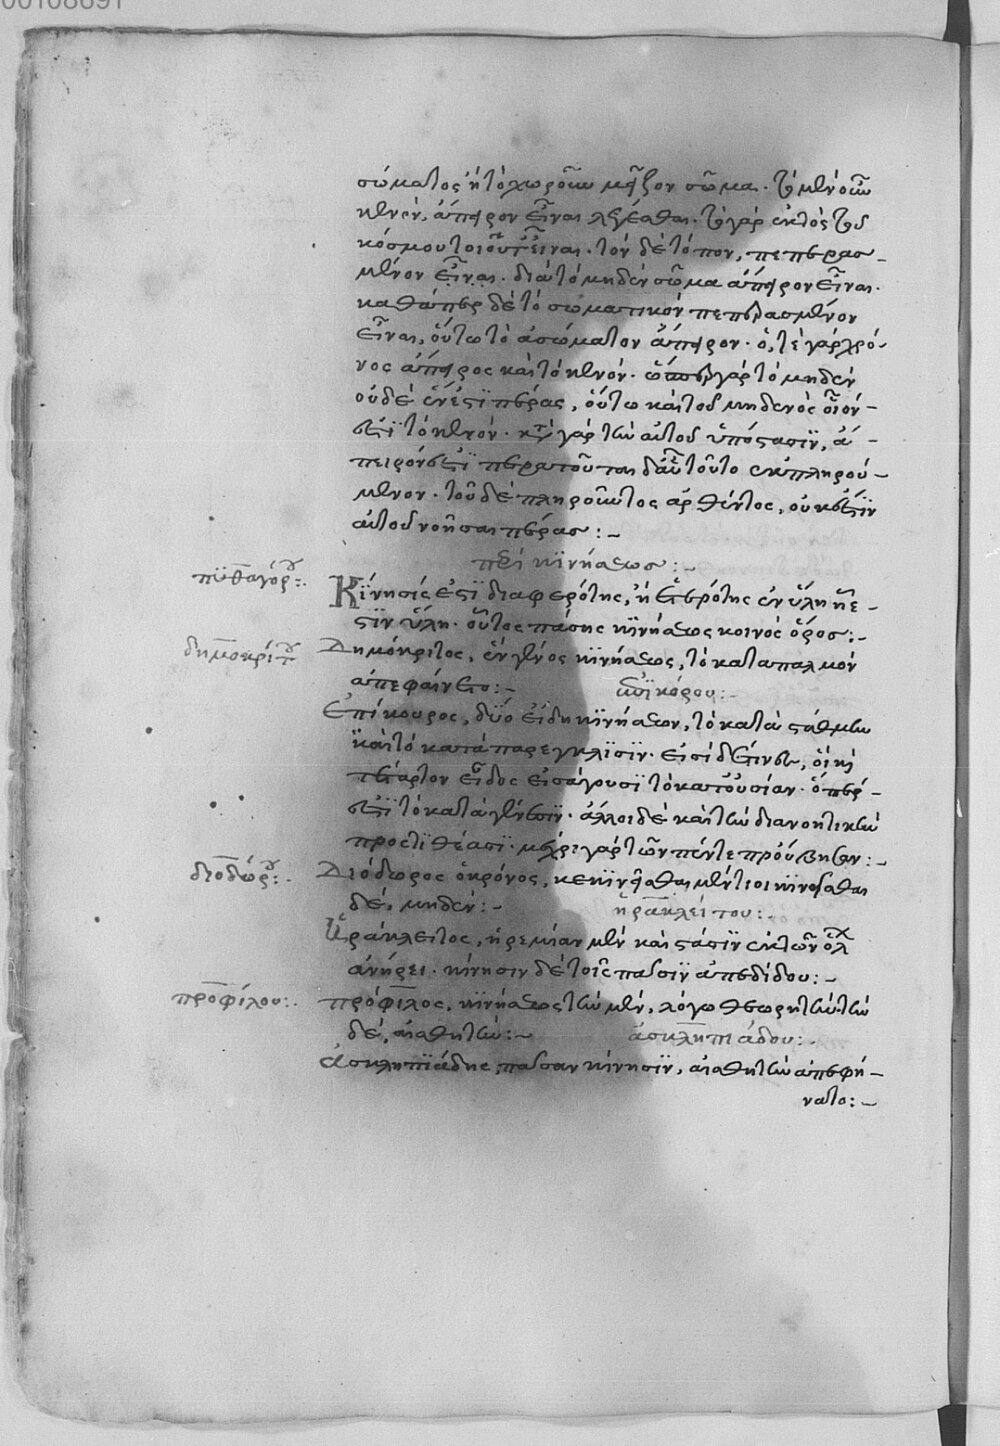 00108691
σώματος ἢ τὸ χωροῦν μεῖζον σῶμα. τὸ μὲν οὖν
κενὸν, ἄπειρον εἶναι λέγεσθαι. τὸ γὰρ ἐκτὸς τοῦ
κόσμου τοιοῦτ εἶναι. τὸν δὲ τόπον, πεπερασ-
μένον εἶναι. διὰ τὸ μηδὲν σῶμα ἄπειρον εἶναι.
καθάπερ δὲ τὸ σωματικὸν πεπερασμένον
εἶναι, οὕτω τὸ ἀσώματον ἄπειρον. ὅ, τε γὰρ χρό-
νος ἄπειρος καὶ τὸ κενόν. ὥσπερ γὰρ τὸ μηδὲν
οὐδέ ἐν ἐστὶ πέρας, οὕτω καὶ τοῦ μηδενὸς οἷόν
ἐστὶ τὸ κενόν. κατὰ γὰρ τὴν αὐτοῦ ὑπόστασϊν, ἄ-
πειρόν ἐστὶ περατοῦται δ' αὖ τοῦτο ἐκπληρού-
μενον. τοῦ δὲ πληροῦντος ἀρθέντος, οὐκ ἔστϊν
αὐτοῦ νοῆσαι πέρας:-
περὶ κϊνήσεως:-
πϋθαγόρου:.
Κϊνησίς ἐστϊ διαφερότης, ἢ ἑτερότης ἐν ὕλη ἧ ἐ-
στϊν ὕλη. οὗτος πάσης κϊνήσεως κοινὸς ὅρος:-
δημοκρίτου
Δημόκριτος, ἓν γένος κϊνήσεως, τὸ κατὰ παλμὸν
ἀπεφαίνετο:- ἐπϊκούρου:-
Επίκουρος, δύο εἴδη κϊνήσεων, τὸ κατὰ στάθμην
καὶ τὸ κατὰ παρέγκλϊσϊν. εἰσὶ δέ τινες, οἳ καὶ
τέταρτον εἶδος εἰσάγουσϊ τὸ κατ' οὐσίαν. ὅπερ
ἐστὶ τὸ κατὰ γένεσϊν. ἄλλοι δὲ καὶ τὴν διανοητικὴν
προστϊθέασϊ. μέχρι γὰρ τῶν πέντε προύβησαν:-
διοδώρου:.
Διόδωρος ὁ κρόνος, κεκϊνῆσθαι μέν τι οι κϊνεῖσθαι
δέ, μηδέν:- ἡρακλείτου:.
Ἡράκλειτος, ἠρεμίαν μὲν καὶ στάσϊν ἐκ τῶν ὅλων
ἀνήρει. κίνησιν δὲ τοῖς πᾶσϊν ἀπεδίδου:-
προφίλου:.
πρόφιλος, κϊνήσεως τὴν μὲν, λόγω θεωρητὴν. τὴν
δέ, αἰσθητήν:- ἀσκληπιάδου:.
Ἀσκληπϊάδης, πᾶσαν κίνησϊν, αἰσθητὴν ἀπεφή-
νατο:-